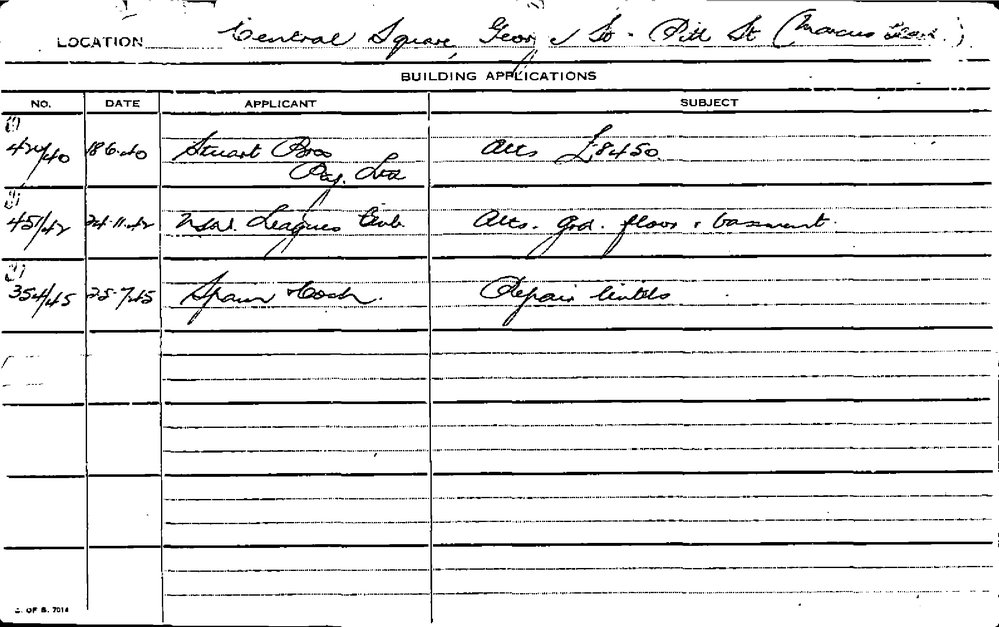 LOCATION Central Square, George St - Pitt St (Marcus
BUILDING APPLICATIONS
NO. DATE APPLICANT SUBJECT
424/40 18.6.40 Stuart Bros Alts £8450
Pty. Ltd
451/42 24.11.42 Leagues Club. Alts. grd. floor & basement.
354/45 25.7.45 Spain & Cosh. Repair lintels
OF S. 7014